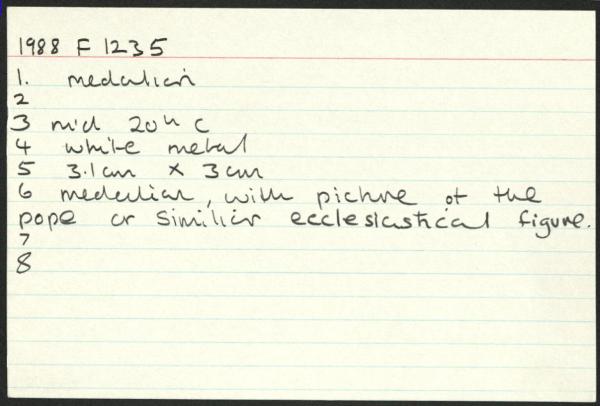 1988 F 1235
1. medallion
2
3 mid 20th C
4 white metal
5 3.1cm x 3cm
6 medallion, with picture of the
pope or similiar ecclesiastical figure.
7
8